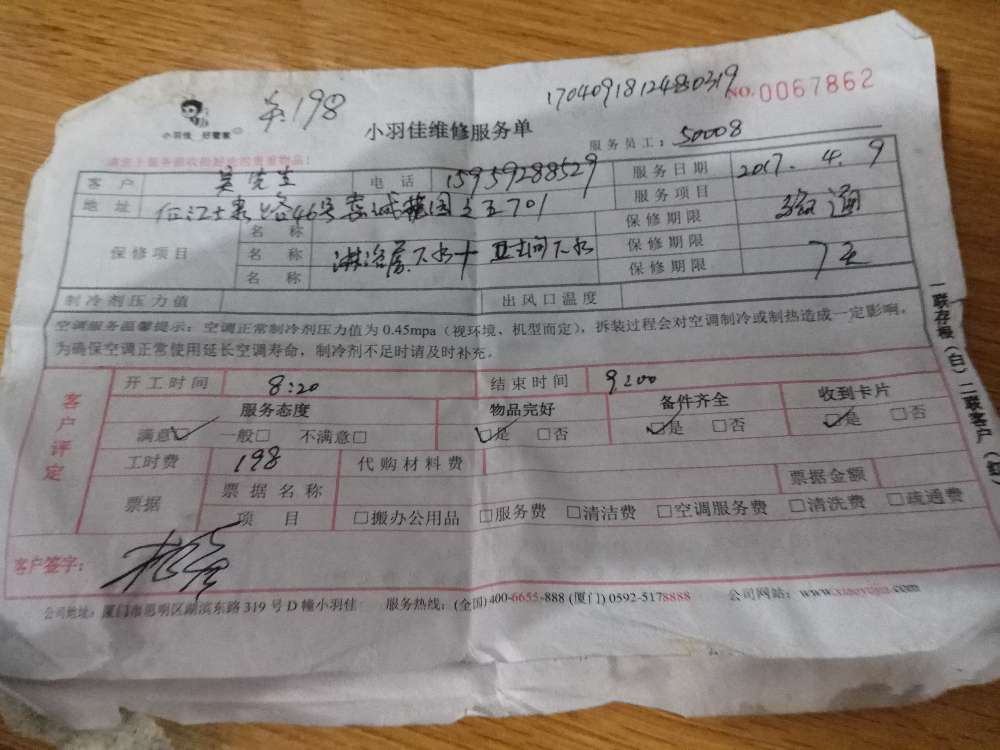 170409181248.0319
NO.0067862
小羽佳 好管家
卡.198
小羽佳维修服务单
服务员工: 50008
客户 吴先生 电话 15959288529 服务日期 2017.4.9
地址 46号 701 服务项目 疏通
保修项目 名称 保修期限
名称 淋浴房下水十卫生间下水 保修期限 7天
名称 保修期限
制冷剂压力值 出风口温度
空调服务温馨提示:空调正常制冷剂压力值为 0.45mpa(视环境、机型而定),拆装过程会对空调制冷或制热造成一定影响。
为确保空调正常使用延长空调寿命,制冷剂不足时请及时补充。
客户评定
开工时间 8:20 结束时间 9:00
服务态度 物品完好 备件齐全 收到卡片
满意☑ 一般□ 不满意□ ☑是 □否 ☑是 □否 ☑是 □否
工时费 198 代购材料费 票据金额
票据 票据名称
项目 □搬办公用品 □服务费 □清洁费 □空调服务费 □清洗费 □疏通费
客户签字:
公司地址:厦门市思明区湖滨东路 319 号 D 幢小羽佳 服务热线:(全国)400-6655-888 (厦门) 0592-5178888 公司网站:www.xiaoyujia.com
一联存根(白)二联客户